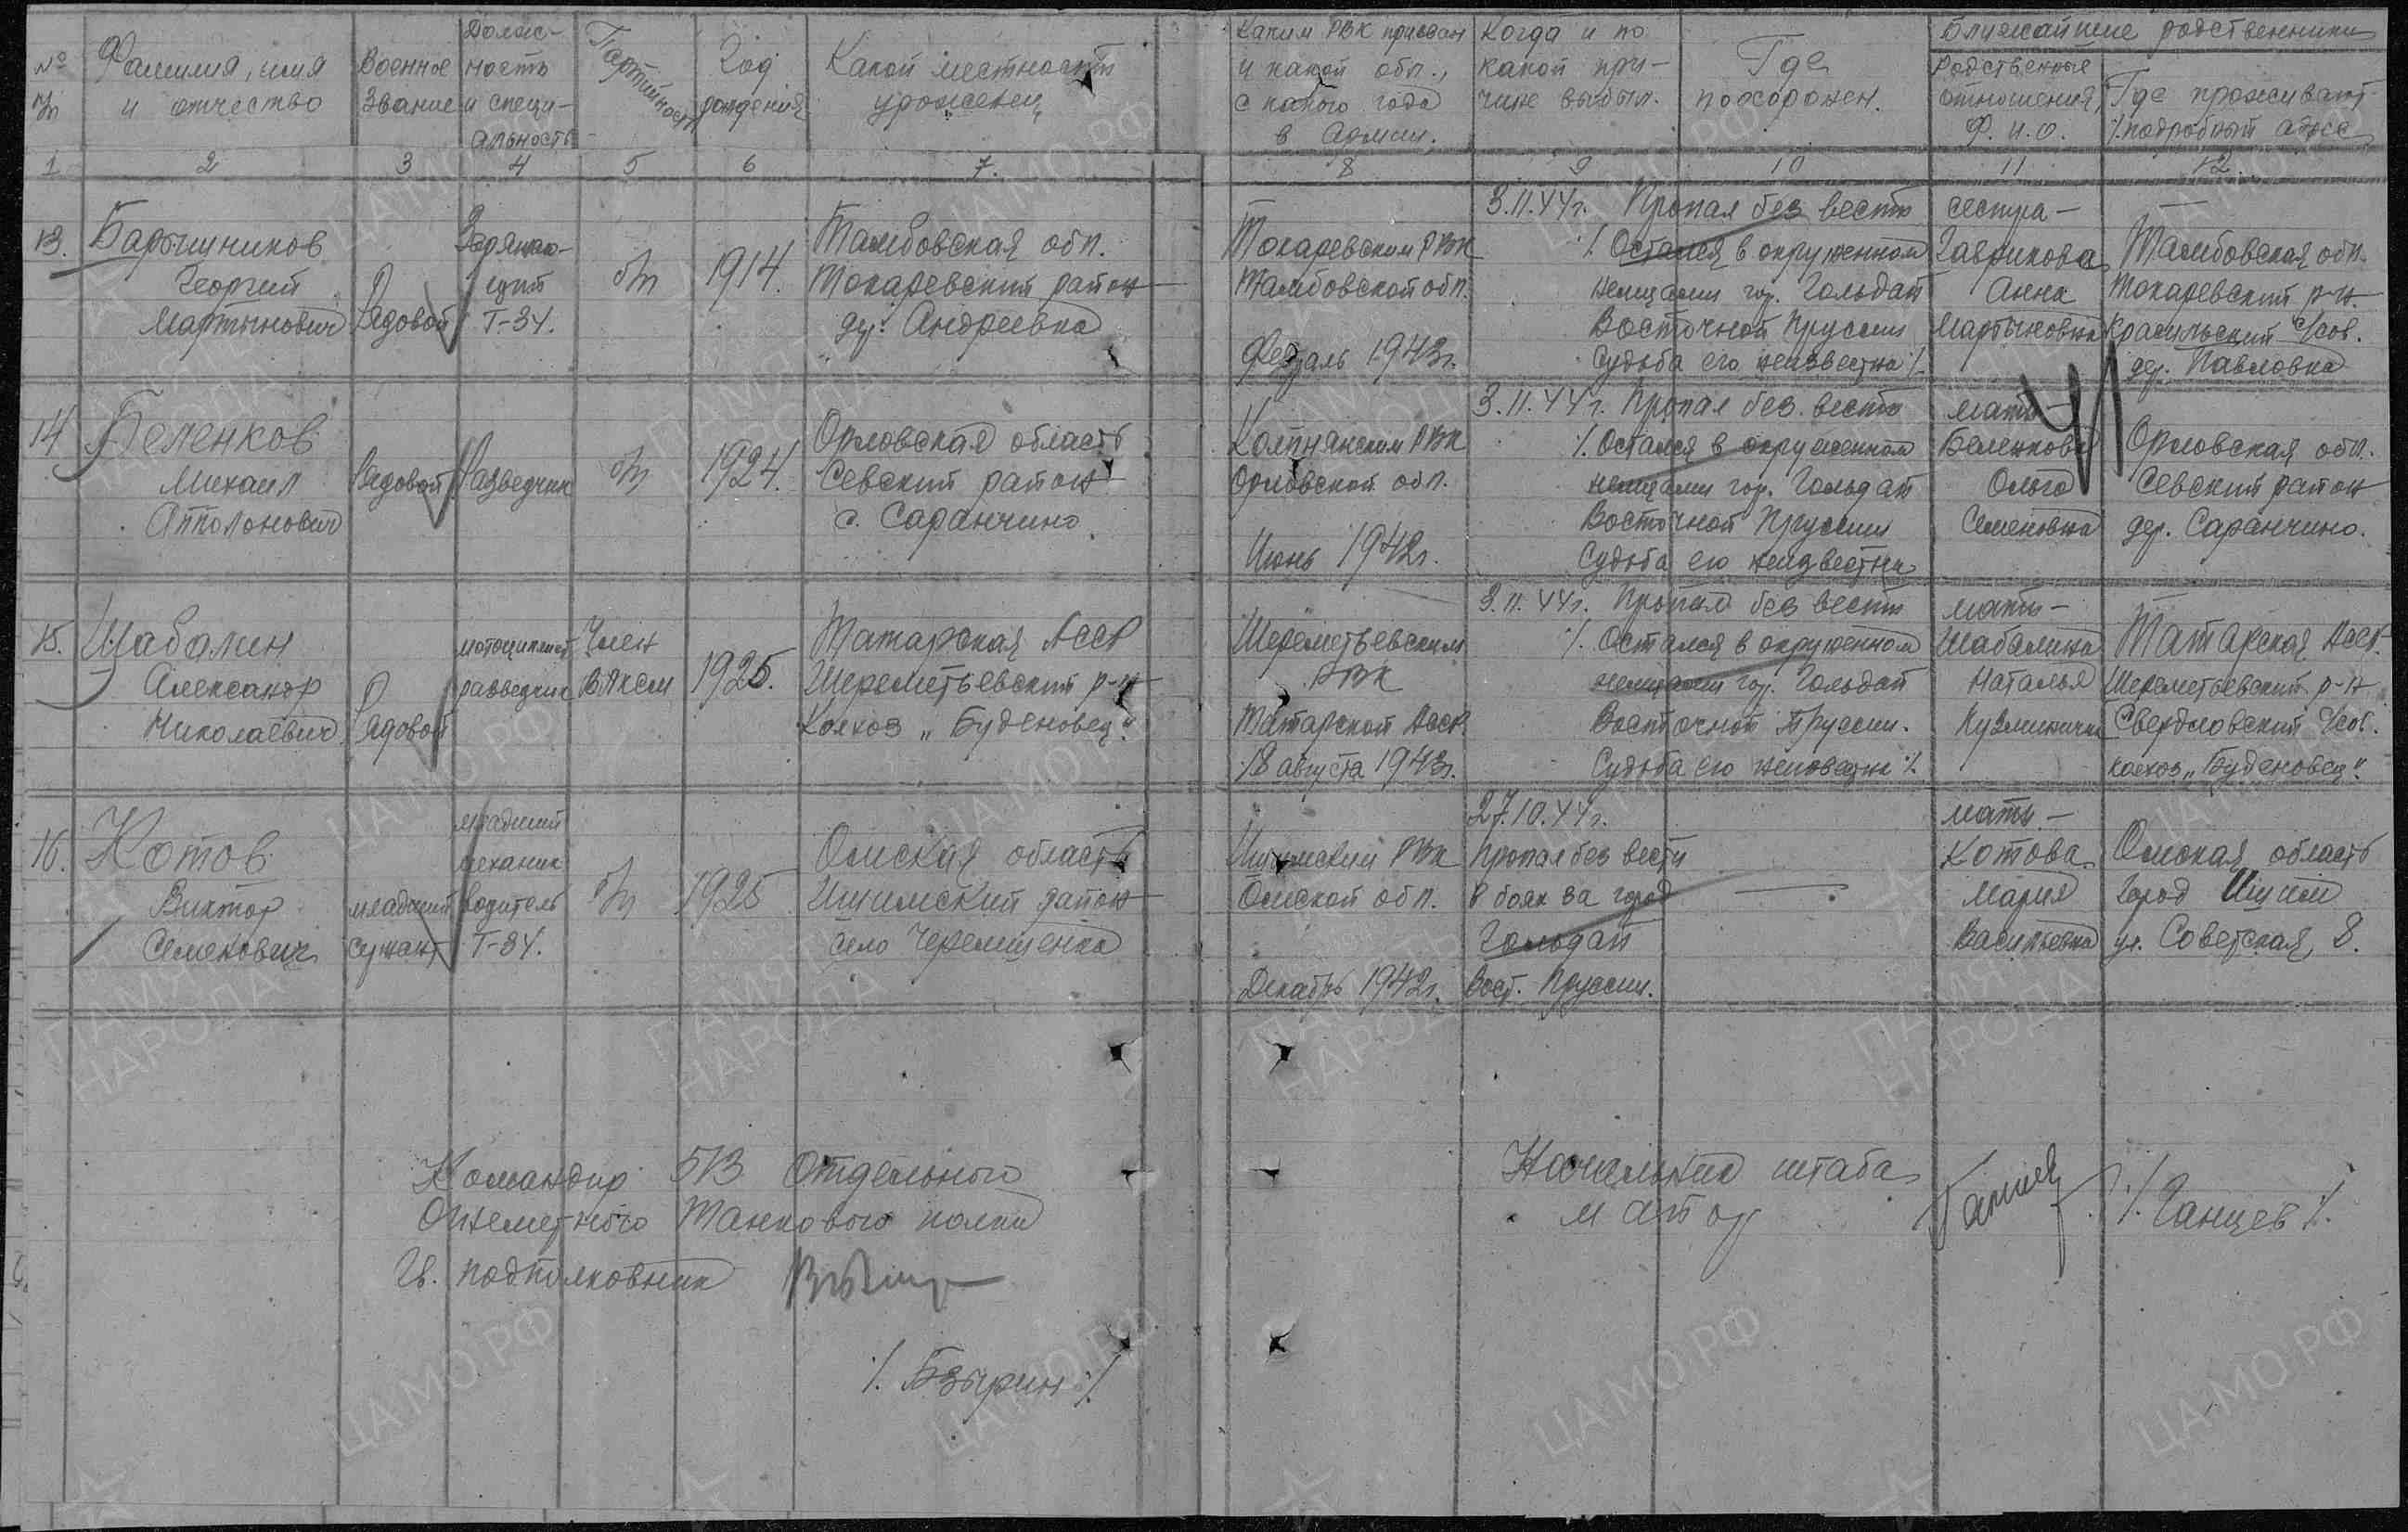 № п/п
Фамилия, имя и отчество
Военное звание
Должность и специальность
Партийность
Год рождения
Какой местности уроженец
Каким РВК призван и какой обл., с какого года в Армии.
Когда и по какой причине выбыл.
Где похоронен.
Ближайшие родственники
Родственные отношения, Ф.И.О.
Где проживают /подробный адрес
1 2 3 4 5 6 7. 8 9 10 11 12
13. Барышников Георгий Мартынович
Рядовой
Заряжающий Т-34.
б/п
1914.
Тамбовская обл. Токаревский район дер. Андреевка
Токаревским РВК Тамбовской обл. Февраль 1943г.
3.11.44г. Пропал без вести
/. Остался в окруженном
немцами гор. Гольдап
Восточной Пруссии
Судьба его неизвестна /.
сестра - Гаврикова Анна Мартыновна
Тамбовская обл. Токаревский р-н. с/сов. дер. Павловка
14 Беленков Михаил Апполонович
Рядовой
Разведчик
б/п
1924.
Орловская область Севский район с. Саранчино
Колпнянским РВК Орловской обл. Июнь 1942г.
3.11.44г. Пропал без вести
/. Остался в окруженном
немцами гор. Гольдап
Восточной Пруссии
Судьба его неизвестна
мать - Беленкова Ольга Семеновна
Орловская обл. Севский район дер. Саранчино.
15. Шабалин Александр Николаевич
Рядовой
мотоциклист разведчик
Член ВЛКСМ
1925.
Татарская АССР Шереметьевский р-н Колхоз „Буденовец".
Шереметьевским РВК Татарской АССР. 18 августа 1943г.
3.11.44г. Пропал без вести
/. Остался в окруженном
немцами гор. Гольдап
Восточной Пруссии.
Судьба его неизвестна /.
мать - Шабалина Наталья
Татарская АССР. Шереметьевский р-н Свердловский с/сов. колхоз „Буденовец".
16. Котов Виктор Семенович
младший сержант
младший механик водитель Т-34.
б/п
1925
Омская область Ишимский район село Черемшенка
Ишимский РВК Омской обл. Декабрь 1942г.
27.10.44г.
Пропал без вести
в боях за город
Гольдап
Вост. Пруссии.
мать - Котова Мария Васильевна
Омская область город Ишим ул. Советская, 8.
Командир 513 Отдельного
Огнеметного Танкового полка
Гв. подполковник
/. Бзырин /.
Начальник штаба
майор
/. Ганцев /.
ПАМЯТЬ НАРОДА
ЦАМО.РФ